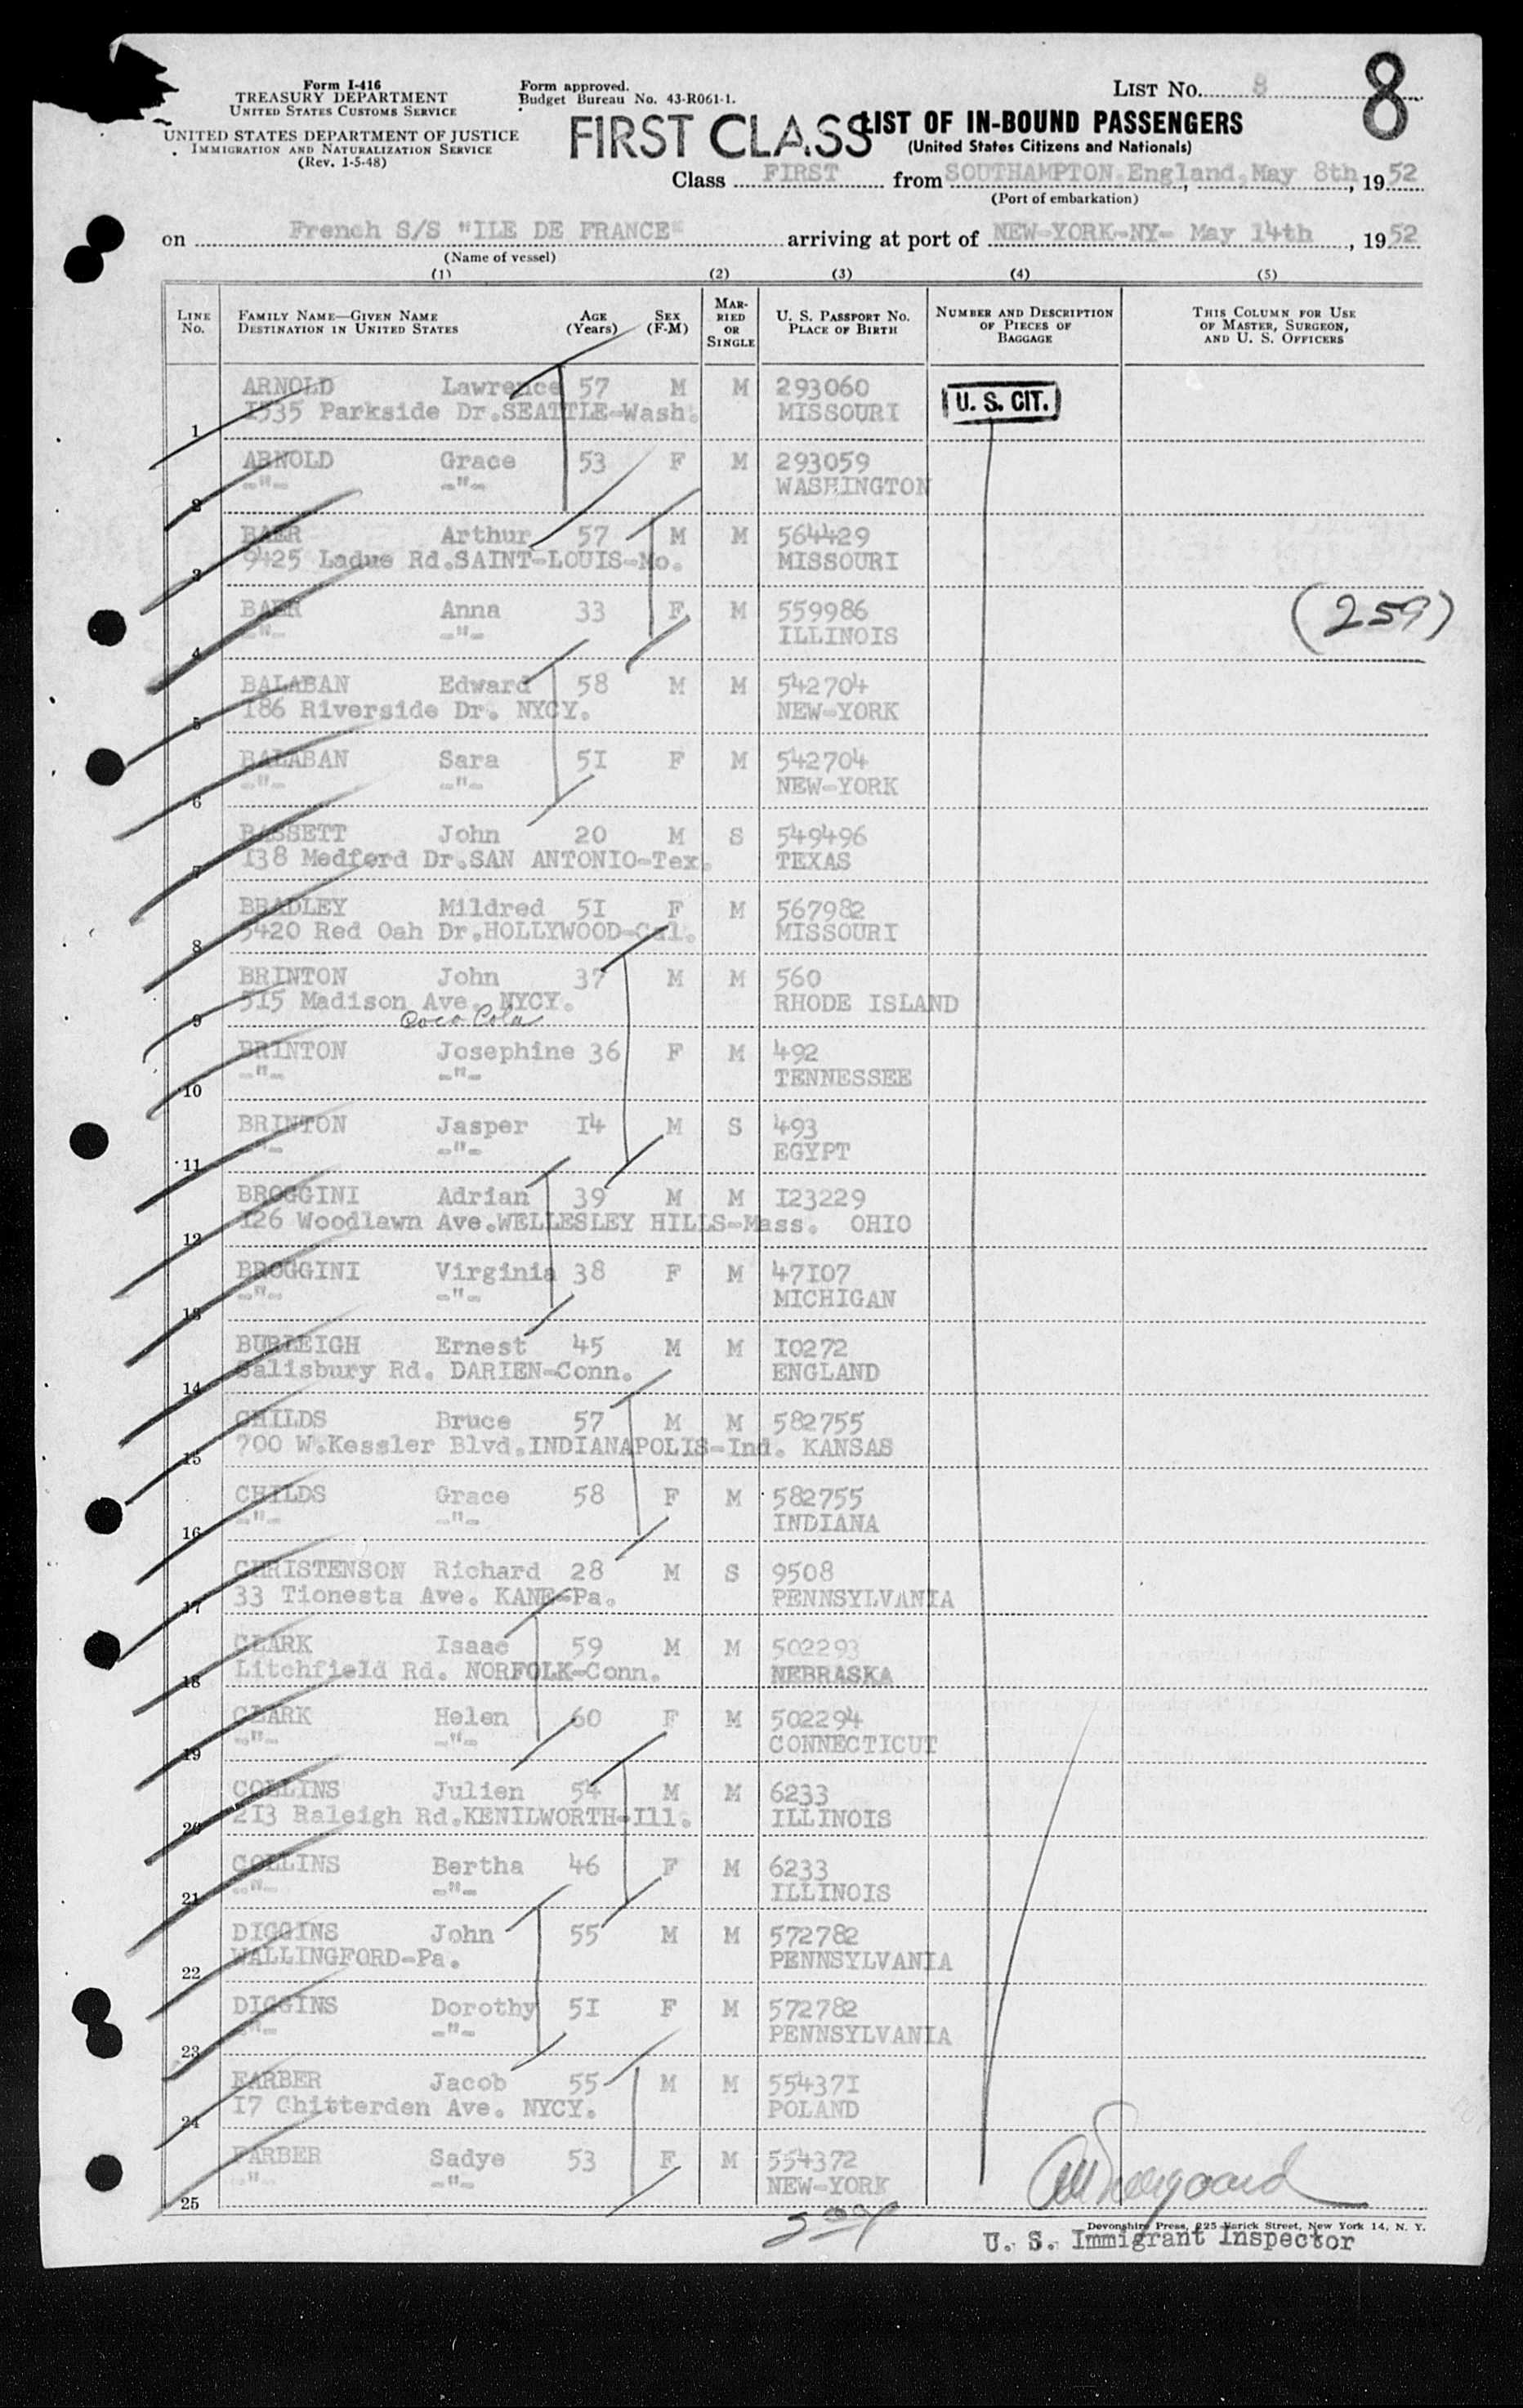 Form I-416
TREASURY DEPARTMENT
UNITED STATES CUSTOMS SERVICE
UNITED STATES DEPARTMENT OF JUSTICE
IMMIGRATION AND NATURALIZATION SERVICE
(Rev. 1-5-48)
Form approved.
Budget Bureau No. 43-R061-1.
LIST No. 8
8
FIRST CLASS
LIST OF IN-BOUND PASSENGERS
(United States Citizens and Nationals)
Class FIRST from SOUTHAMPTON,England, May 8th, 1952
(Port of embarkation)
on French S/S "ILE DE FRANCE" arriving at port of NEW-YORK-NY- May 14th, 1952
(Name of vessel)
(1) (2) (3) (4) (5)
LINE No. FAMILY NAME—GIVEN NAME DESTINATION IN UNITED STATES AGE (Years) SEX (F-M) MARRIED OR SINGLE U. S. PASSPORT No. PLACE OF BIRTH NUMBER AND DESCRIPTION OF PIECES OF BAGGAGE THIS COLUMN FOR USE OF MASTER, SURGEON, AND U. S. OFFICERS
ARNOLD Lawrence 57 M M 293060
1 1535 Parkside Dr.SEATTLE-Wash. MISSOURI
U. S. CIT.
ARNOLD Grace 53 F M 293059
2 -"- -"- WASHINGTON
BAER Arthur 57 M M 564429
3 9425 Ladue Rd.SAINT-LOUIS-Mo. MISSOURI
BAER Anna 33 F M 559986
4 -"- -"- ILLINOIS
(259)
BALABAN Edward 58 M M 542704
5 186 Riverside Dr. NYCY. NEW-YORK
BALABAN Sara 5I F M 542704
6 -"- -"- NEW-YORK
BASSETT John 20 M S 549496
7 I38 Medford Dr.SAN ANTONIO-Tex. TEXAS
BRADLEY Mildred 5I F M 567982
8 5420 Red Oah Dr.HOLLYWOOD-Cal. MISSOURI
BRINTON John 37 M M 560
9 515 Madison Ave. NYCY. RHODE ISLAND
Coco Cola
BRINTON Josephine 36 F M 492
10 -"- -"- TENNESSEE
BRINTON Jasper I4 M S 493
11 -"- -"- EGYPT
BROGGINI Adrian 39 M M I23229
12 I26 Woodlawn Ave.WELLESLEY HILLS-Mass. OHIO
BROGGINI Virginia 38 F M 47I07
13 -"- -"- MICHIGAN
BURLEIGH Ernest 45 M M I0272
14 Salisbury Rd. DARIEN-Conn. ENGLAND
CHILDS Bruce 57 M M 582755
15 700 W.Kessler Blvd.INDIANAPOLIS-Ind. KANSAS
CHILDS Grace 58 F M 582755
16 -"- -"- INDIANA
CHRISTENSON Richard 28 M S 9508
17 33 Tionesta Ave. KANE-Pa. PENNSYLVANIA
CLARK Isaac 59 M M 502293
18 Litchfield Rd. NORFOLK-Conn. NEBRASKA
CLARK Helen 60 F M 502294
19 -"- -"- CONNECTICUT
COLLINS Julien 54 M M 6233
20 2I3 Raleigh Rd.KENILWORTH-Ill. ILLINOIS
COLLINS Bertha 46 F M 6233
21 -"- -"- ILLINOIS
DIGGINS John 55 M M 572782
22 WALLINGFORD-Pa. PENNSYLVANIA
DIGGINS Dorothy 5I F M 572782
23 -"- -"- PENNSYLVANIA
FARBER Jacob 55 M M 55437I
24 I7 Chitterden Ave. NYCY. POLAND
FARBER Sadye 53 F M 554372
25 -"- -"- NEW-YORK
Devonshire Press, 225 Varick Street, New York 14, N. Y.
U. S. Immigrant Inspector